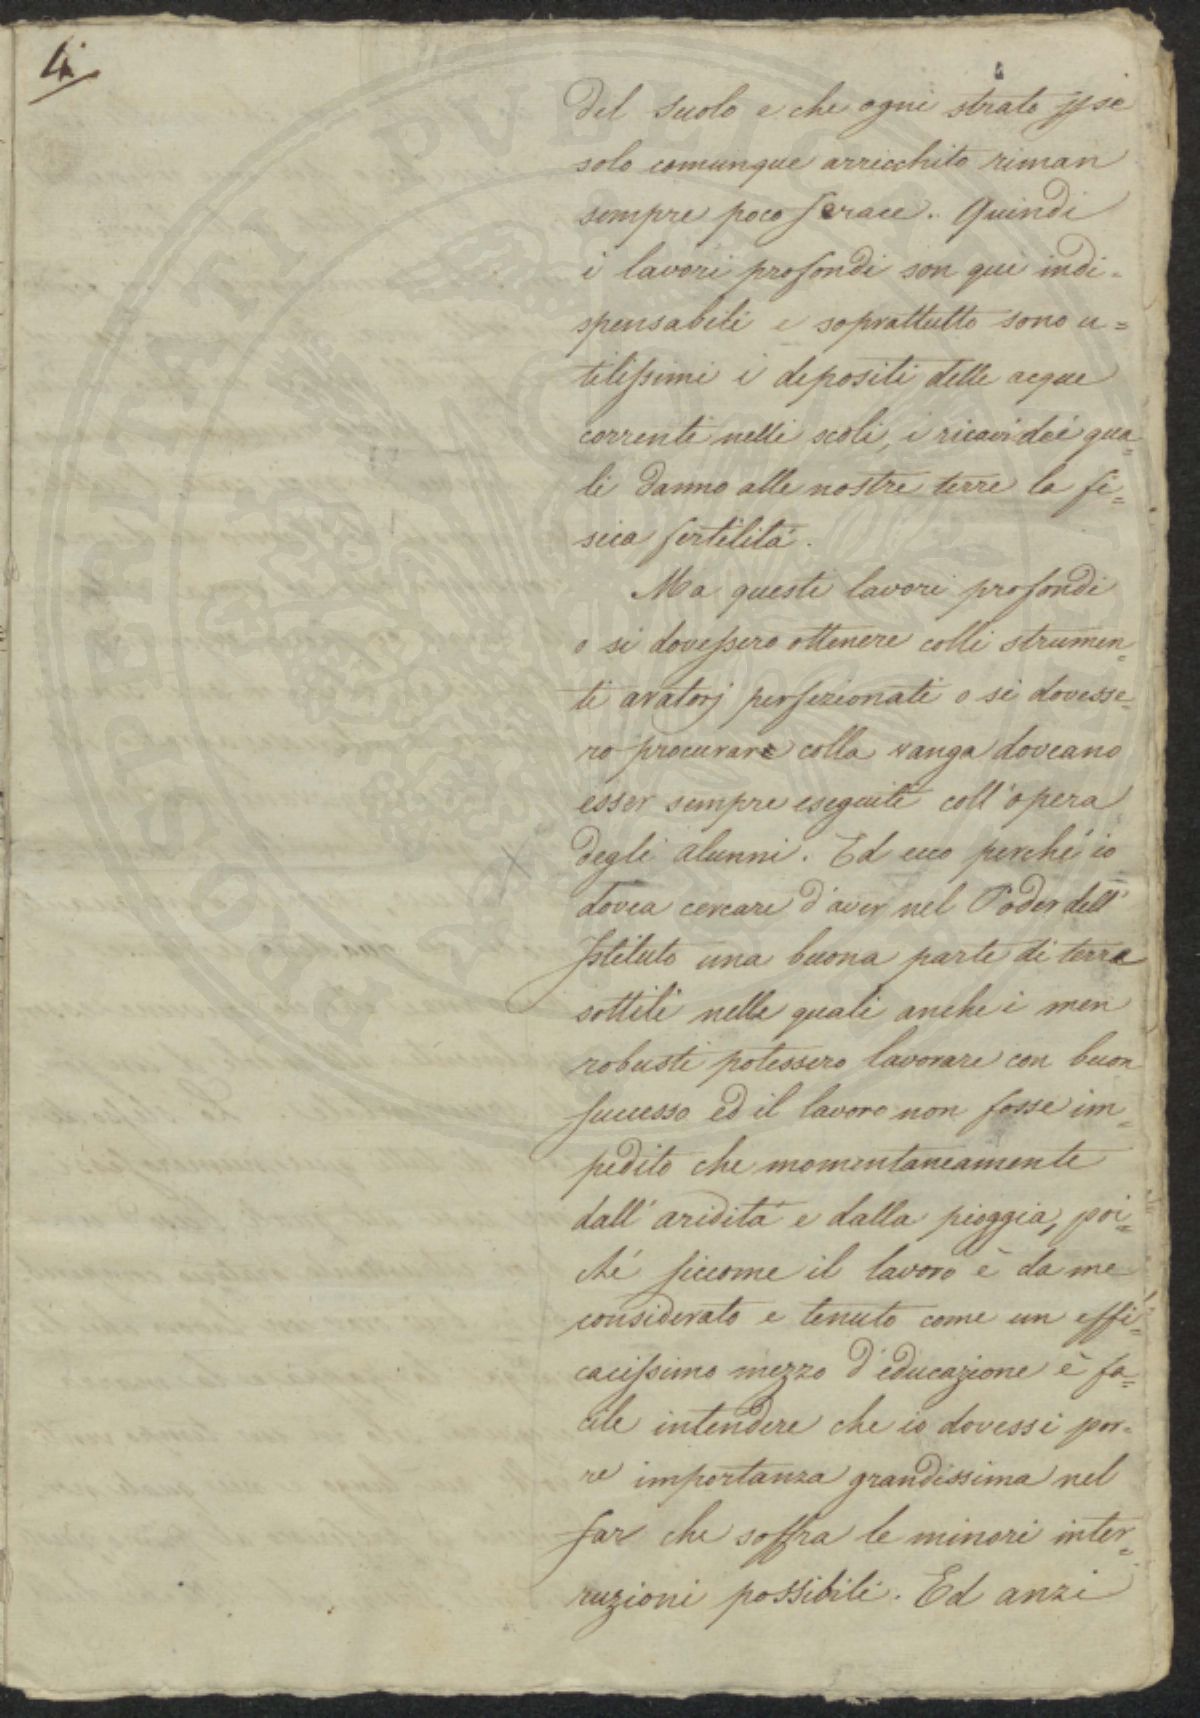 4.
del suolo e che ogni strato p se
solo comunque arricchito riman
sempre poco ferace. Quindi
i lavori profondi son qui indi=
spensabili e soprattutto sono u=
tilissimi i depositi delle acque
correnti nelli scoli, i ricavi dei qua=
li danno alle nostre terre la fi=
sica fertilità.
Ma questi lavori profondi
o si dovessero ottenere colli strumen=
ti aratorj perfezionati o si dovesse=
ro procurare colla vanga doveano
esser sempre eseguiti coll'opera
degli alunni. Ed ecco perché io
dovea cercare d'aver nel Poder dell'
Istituto una buona parte di terre
sottili nelle quali anche i men
robusti potessero lavorare con buon
successo ed il lavoro non fosse im=
pedito che momentaneamente
dall'aridità e dalla pioggia, poi=
ché siccome il lavoro è da me
considerato e tenuto come un effi=
cacissimo mezzo d'educazione è fa=
cile intendere che io dovessi por=
re importanza grandissima nel
far che soffra le minori inter=
ruzioni possibili. Ed anzi